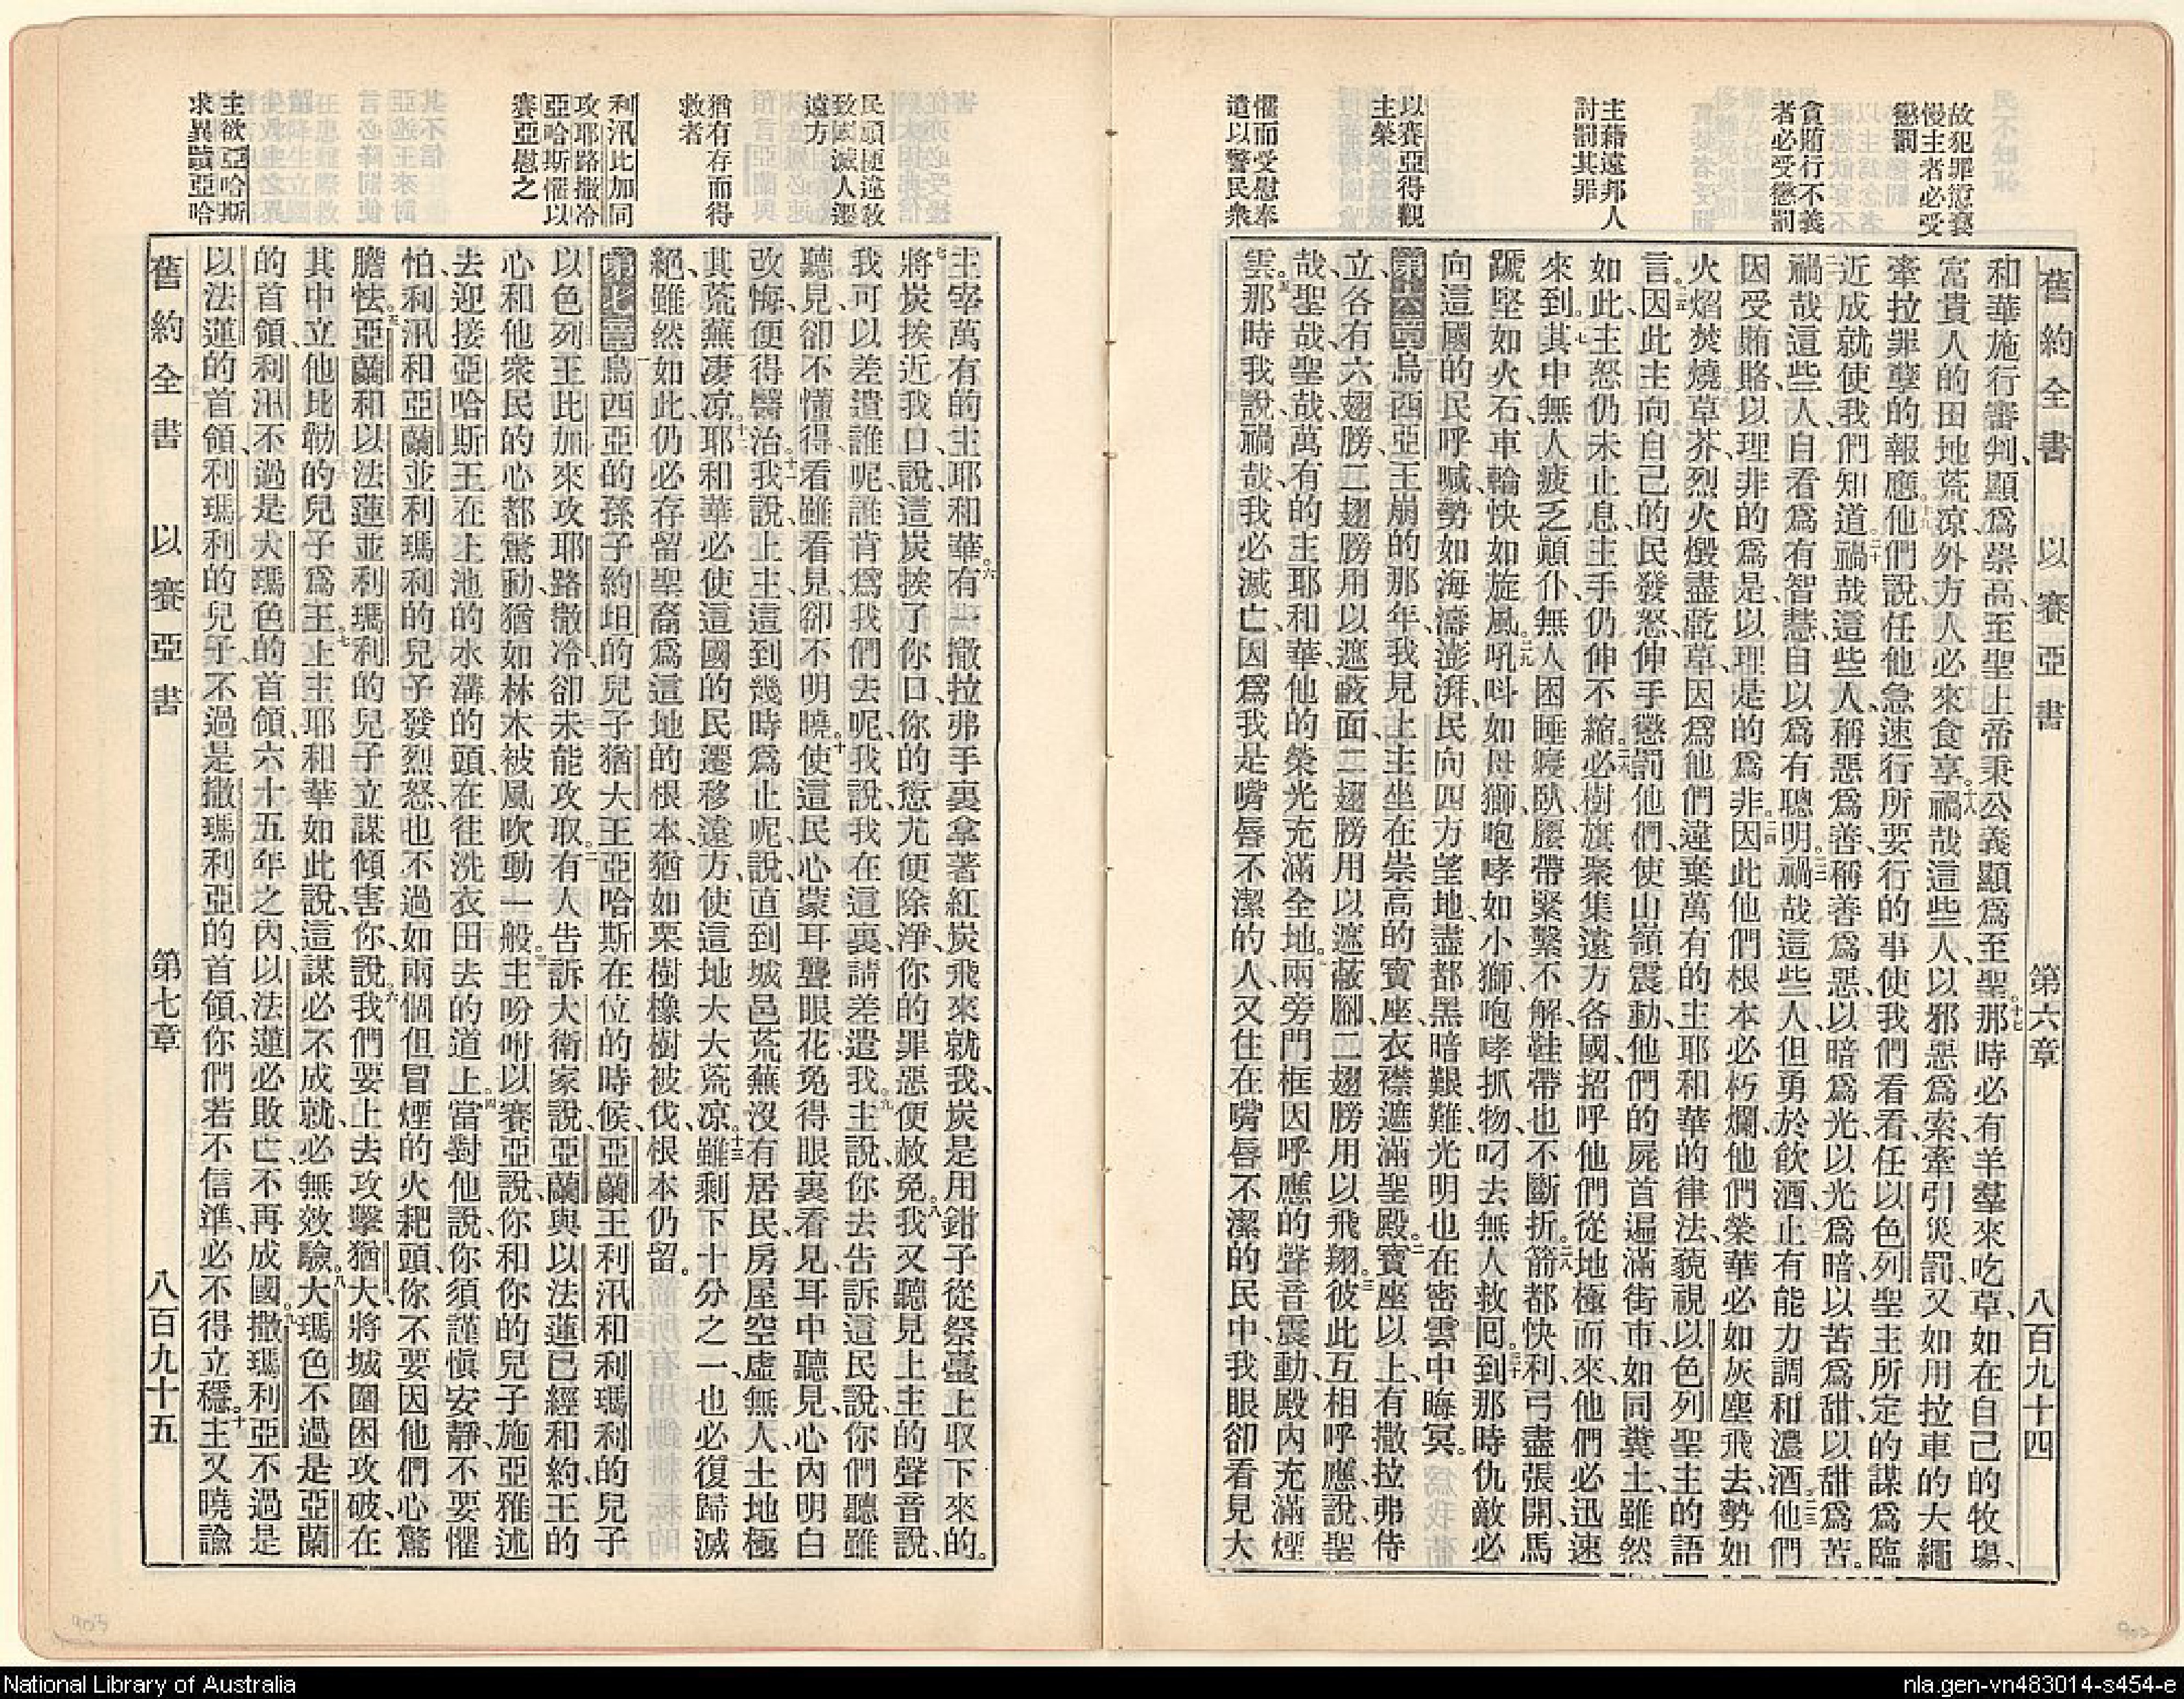 故犯罪愆褻
慢主者必受
懲罰
貪賄行不義
者必受懲罰
主藉遠邦人
討罰其罪
以賽亞得觀
主榮
懼而受慰奉
遣以警民衆
舊約全書 以賽亞書 第六章 八百九十四
和華施行審判、顯爲崇高、至聖上帝秉公義顯爲至聖。十七那時必有羊羣來吃草、如在自己的牧場、
富貴人的田地荒凉、外方人必來食享。十八禍哉這些人、以邪惡爲索、牽引災罰、又如用拉車的大繩
牽拉罪孽的報應。十九他們說、任他急速行所要行的事、使我們看看、任以色列聖主所定的謀爲臨
近成就、使我們知道。二十禍哉這些人、稱惡爲善、稱善爲惡、以暗爲光、以光爲暗、以苦爲甜、以甜爲苦。
禍哉這些人、自看爲有智慧、自以爲有聰明。二二禍哉這些人、但勇於飲酒、止有能力調和濃酒。二三他們
因受賄賂、以理非的爲是、以理是的爲非。二四因此他們根本必朽爛、他們榮華必如灰塵飛去、勢如
火焰焚燒草芥、烈火燬盡乾草、因爲他們違棄萬有的主耶和華的律法、藐視以色列聖主的語
言。二五因此主向自己的民發怒、伸手懲罰他們、使山嶺震動、他們的屍首遍滿街市、如同糞土、雖然
如此、主怒仍未止息、主手仍伸不縮。二六必樹旗聚集遠方各國、招呼他們從地極而來、他們必迅速
來到。二七其中無人疲乏顛仆、無人困睡寢臥、腰帶緊繫不解、鞋帶也不斷折。二八箭都快利、弓盡張開、馬
蹏堅如火石、車輪快如旋風。二九吼呌如母獅、咆哮如小獅、咆哮抓物、叼去無人救囘。三十到那時仇敵必
向這國的民呼喊、勢如海濤澎湃、民向四方望地、盡都黑暗艱難、光明也在密雲中晦冥。
第六章烏西亞王崩的那年、我見上主坐在崇高的寶座、衣襟遮滿聖殿。二寶座以上、有撒拉弗侍
立、各有六翅膀、二翅膀用以遮蔽面、二翅膀用以遮蔽腳、二翅膀用以飛翔。三彼此互相呼應、說、聖
哉、聖哉、聖哉、萬有的主耶和華、他的榮光充滿全地。四兩旁門框因呼應的聲音震動、殿內充滿煙
雲。五那時我說、禍哉、我必滅亡、因爲我是嘴唇不潔的人、又住在嘴唇不潔的民中、我眼卻看見大
民頑梗違敎
致國滅人遷
遠方
猶有存而得
救者
利汛比加同
攻耶路撒冷
亞哈斯懼以
賽亞慰之
主欲亞哈斯
求異蹟亞哈
主宰萬有的主耶和華。六有一撒拉弗手裏拿著紅炭飛來就我、炭是用鉗子從祭臺上取下來的。
七將炭挨近我口、說、這炭挨了你口、你的愆尤便除淨、你的罪惡便赦免。八我又聽見上主的聲音說、
我可以差遣誰呢、誰肯爲我們去呢、我說、我在這裏、請差遣我。九主說、你去告訴這民說、你們聽雖
聽見、卻不懂得、看雖看見、卻不明曉。十使這民心蒙耳聾眼花、免得眼裏看見、耳中聽見、心內明白
改悔、便得醫治。十一我說、上主、這到幾時爲止呢、說、直到城邑荒蕪、沒有居民、房屋空虛無人、土地極
其荒蕪凄凉。十二耶和華必使這國的民遷移遠方、使這地大大荒凉。十三雖剩下十分之一、也必復歸滅
絕、雖然如此、仍必存留聖裔爲這地的根本、猶如栗樹橡樹被伐、根本仍留。
第七章一烏西亞的孫子、約坦的兒子、猶大王亞哈斯在位的時候、亞蘭王利汛、和利瑪利的兒子
以色列王比加、來攻耶路撒冷、卻未能攻取。二有人告訴大衛家說、亞蘭與以法蓮已經和約、王的
心和他衆民的心都驚動、猶如林木被風吹動一般。三主吩咐以賽亞說、你和你的兒子施亞雅述
去迎接亞哈斯王、在上池的水溝的頭、在往洗衣田去的道上。四當對他說、你須謹愼安靜、不要懼
怕、利汛和亞蘭並利瑪利的兒子發烈怒、也不過如兩個但冒煙的火耙頭、你不要因他們心驚
膽怯。五亞蘭和以法蓮並利瑪利的兒子立謀傾害你、說。六我們要上去攻擊猶大、將城圍困攻破、在
其中立他比勒的兒子爲王。七上主耶和華如此說、這謀必不成就、必無效驗。八大瑪色不過是亞蘭
的首領、利汛不過是大瑪色的首領、六十五年之內、以法蓮必敗亡、不再成國。九撒瑪利亞不過是
以法蓮的首領、利瑪利的兒子、不過是撒瑪利亞的首領、你們若不信準、必不得立穩。十主又曉諭
舊約全書 以賽亞書 第七章 八百九十五
National Library of Australia
nla.gen-vn483014-s454-e